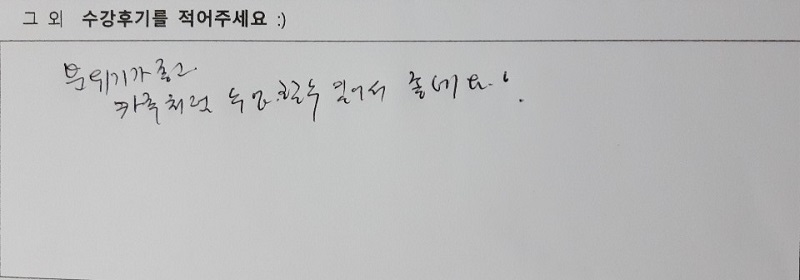 그 외 수강후기를 적어주세요 :)
분위기가 좋고
가족처럼 수강할수 있어서 좋네요!